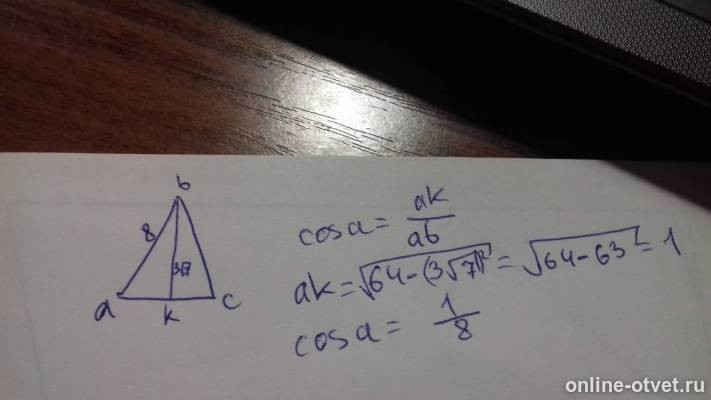 b
8
3√7
a
k
c
cos a = ak/ab
ak = √64 - (3√7)² = √64 - 63 = 1
cos a = 1/8
online-otvet.ru